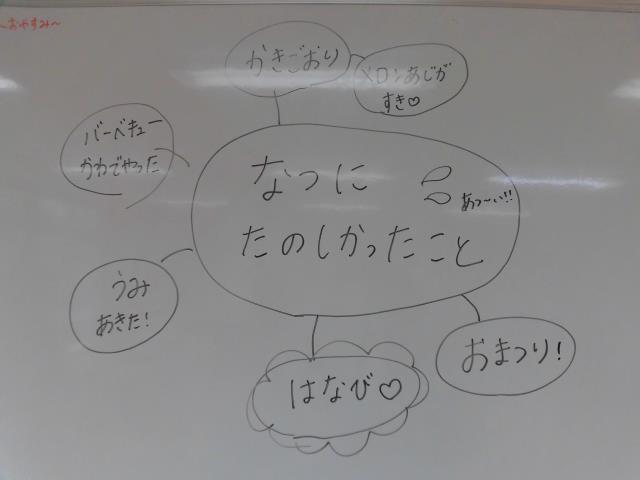 ～おやすみ～
かきごおり
メロンあじが
すき♡
バーベキュー
かわでやった
なつに
あっ～い!!
たのしかったこと
うみ
あきた!
おまつり!
はなび♡